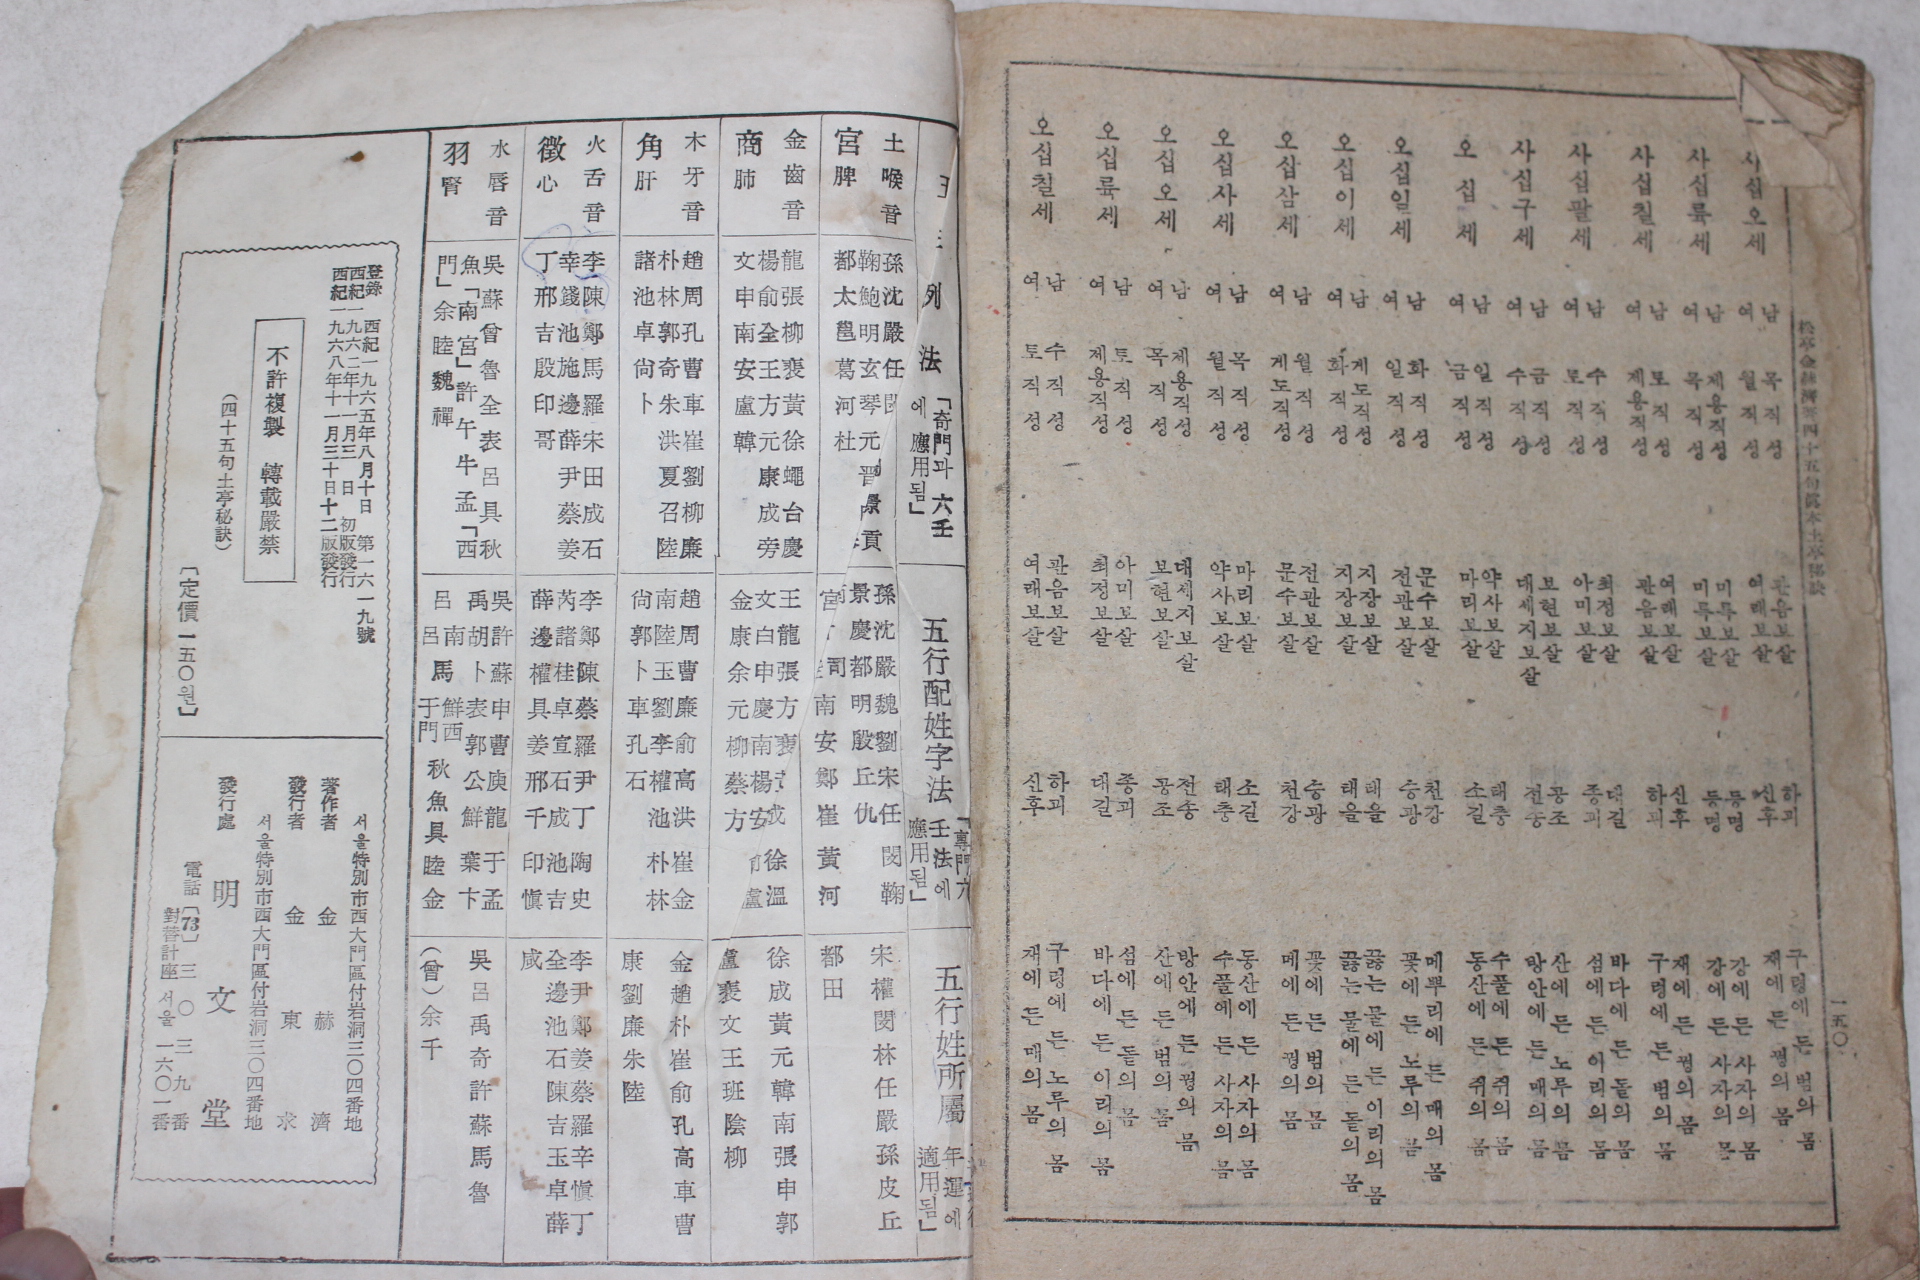 松亭金赫濟著四十五句眞本土亭秘訣
一五〇
사십오세
남 목직성 관음보살 하괴 구렁에 든 범의 몸
여 월직성 여래보살 신후 재에 든 꿩의 몸
사십륙세
남 제용직성 미륵보살 등명 강에 든 사자의 몸
여 목직성 미륵보살 등명 강에 든 사자의 몸
사십칠세
남 토직성 여래보살 신후 재에 든 꿩의 몸
여 제용직성 관음보살 하괴 구렁에 든 범의 몸
사십팔세
남 수직성 최정보살 대길 바다에 든 돌의 몸
여 토직성 아미보살 종괴 섬에 든 이리의 몸
사십구세
남 금직성 보현보살 공조 산에 든 노루의 몸
여 수직상 대세지보살 전송 방안에 든 매의 몸
오십세
남 일직성 약사보살 태충 수풀에 든 쥐의 몸
여 금직성 마리보살 소길 동산에 든 쥐의 몸
오십일세
남 화직성 문수보살 천강 메뿌리에 든 매의 몸
여 일직성 전관보살 승광 꽃에 든 노루의 몸
오십이세
남 게도직성 지장보살 태을 끓는 물에 든 이리의 몸
여 화직성 지장보살 태을 끓는 물에 든 돝의 몸
오삽삼세
남 월직성 전관보살 승광 꽃에 든 범의 몸
여 게도직성 문수보살 천강 메에 든 꿩의 몸
오십사세
남 목직성 마리보살 소길 동산에 든 사자의 몸
여 월직성 약사보살 태충 수풀에 든 사자의 몸
오십오세
남 제용직성 대세지보살 전송 방안에 든 꿩의 몸
여 목직성 보현보살 공조 산에 든 범의 몸
오십륙세
남 토직성 아미보살 종괴 섬에 든 돝의 몸
여 제용직성 최정보살 대길 바다에 든 이리의 몸
오십칠세
남 수직성 관음보살 하괴 구렁에 든 노루의 몸
여 토직성 여래보살 신후 재에 든 매의 몸
列法 「奇門과 六壬에 應用됨」
五行配姓字法 「專門六壬法에 應用됨」
五行姓所屬 年運에 適用됨」
土喉音
宮脾
孫沈嚴任閔
鞠鮑明玄琴元晋景貢
都太邕葛河杜
孫沈嚴魏劉宋任閔鞠
景慶都明殷丘仇
南安鄭崔黃河
宋權閔林任嚴孫皮丘
都田
金齒音
商肺
龍張柳裵黃徐蠅台慶
楊兪金王方元康成旁
文申南安盧韓
王龍張方裵
徐溫
文白申慶南楊安
盧
金康余元柳蔡方
徐成黃元韓南張申郭
盧裵文王班陰柳
木牙音
角肝
趙周孔曹車崔劉柳廉
朴林郭奇朱洪夏召陸
諸池卓尙卜
趙周曹廉兪高洪崔金
南陸玉劉李權池朴林
尙郭車孔石
金趙朴崔兪孔高車曹
康劉廉朱陸
火舌音
徵心
李陳鄭馬羅宋田成石
幸錢池施邊薛尹蔡姜
丁邢吉殷印哥
李鄭陳蔡羅尹丁陶史
芮諸桂卓宣石成池吉
薛邊權具姜邢千印愼
李尹鄭姜蔡羅辛愼丁
全邊池石陳吉玉卓薛
咸
水唇音
羽腎
吳蘇曾魯全表呂具秋
魚「南宮」許午牛孟「西
門」余睦魏禪
吳許蘇申曹庾龍于孟
禹胡卜表郭公鮮葉卞
呂南
鮮西
呂馬
于門
秋魚具睦金
吳呂禹奇許蘇馬魯
(曾)余千
登錄 西紀一九六五年八月十日 第一六一九號
西紀一九六二年十一月三日 初版發行
西紀一九六八年十一月三十日十二版發行
不許複製 轉載嚴禁
(四十五句土亭秘訣)
「定價 一五〇원」
서울特別市西大門區付岩洞三〇四番地
著作者 金赫濟
서울特別市西大門區付岩洞三〇四番地
發行者 金東求
發行處 明文堂
電話(73)三〇三九番
對替計座 서울 一六〇一番